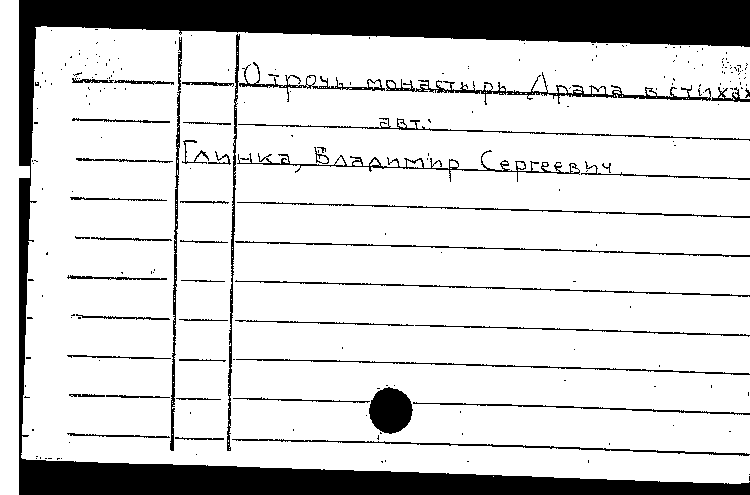 Отрочь монастырь. Драма в стихах
авт.:
Глинка, Владимир Сергеевич.